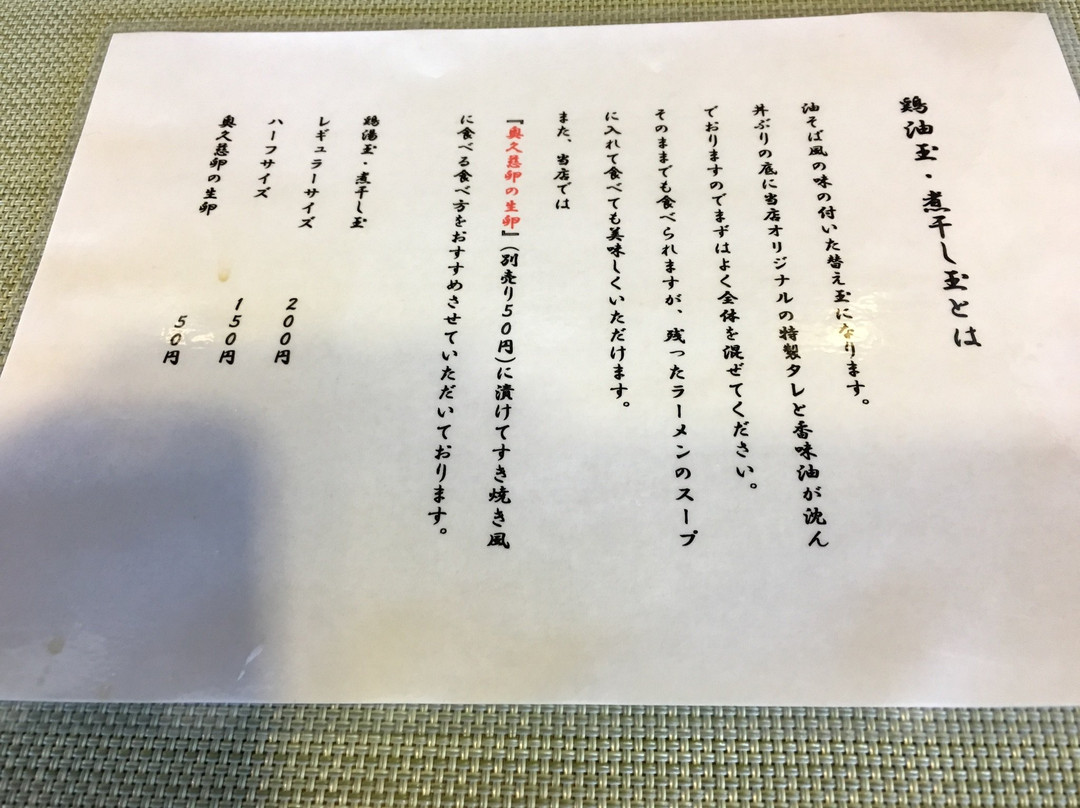 鶏油玉・煮干し玉とは
油そば風の味の付いた替え玉になります。
丼ぶりの底に当店オリジナルの特製タレと香味油が沈ん
でおりますのでまずはよく全体を混ぜてください。
そのままでも食べられますが、残ったラーメンのスープ
に入れて食べても美味しくいただけます。
また、当店では
『奥久慈卵の生卵』(別売り50円)に漬けてすき焼き風
に食べる食べ方をおすすめさせていただいております。
鶏湯玉・煮干し玉
レギュラーサイズ 200円
ハーフサイズ 150円
奥久慈卵の生卵 50円